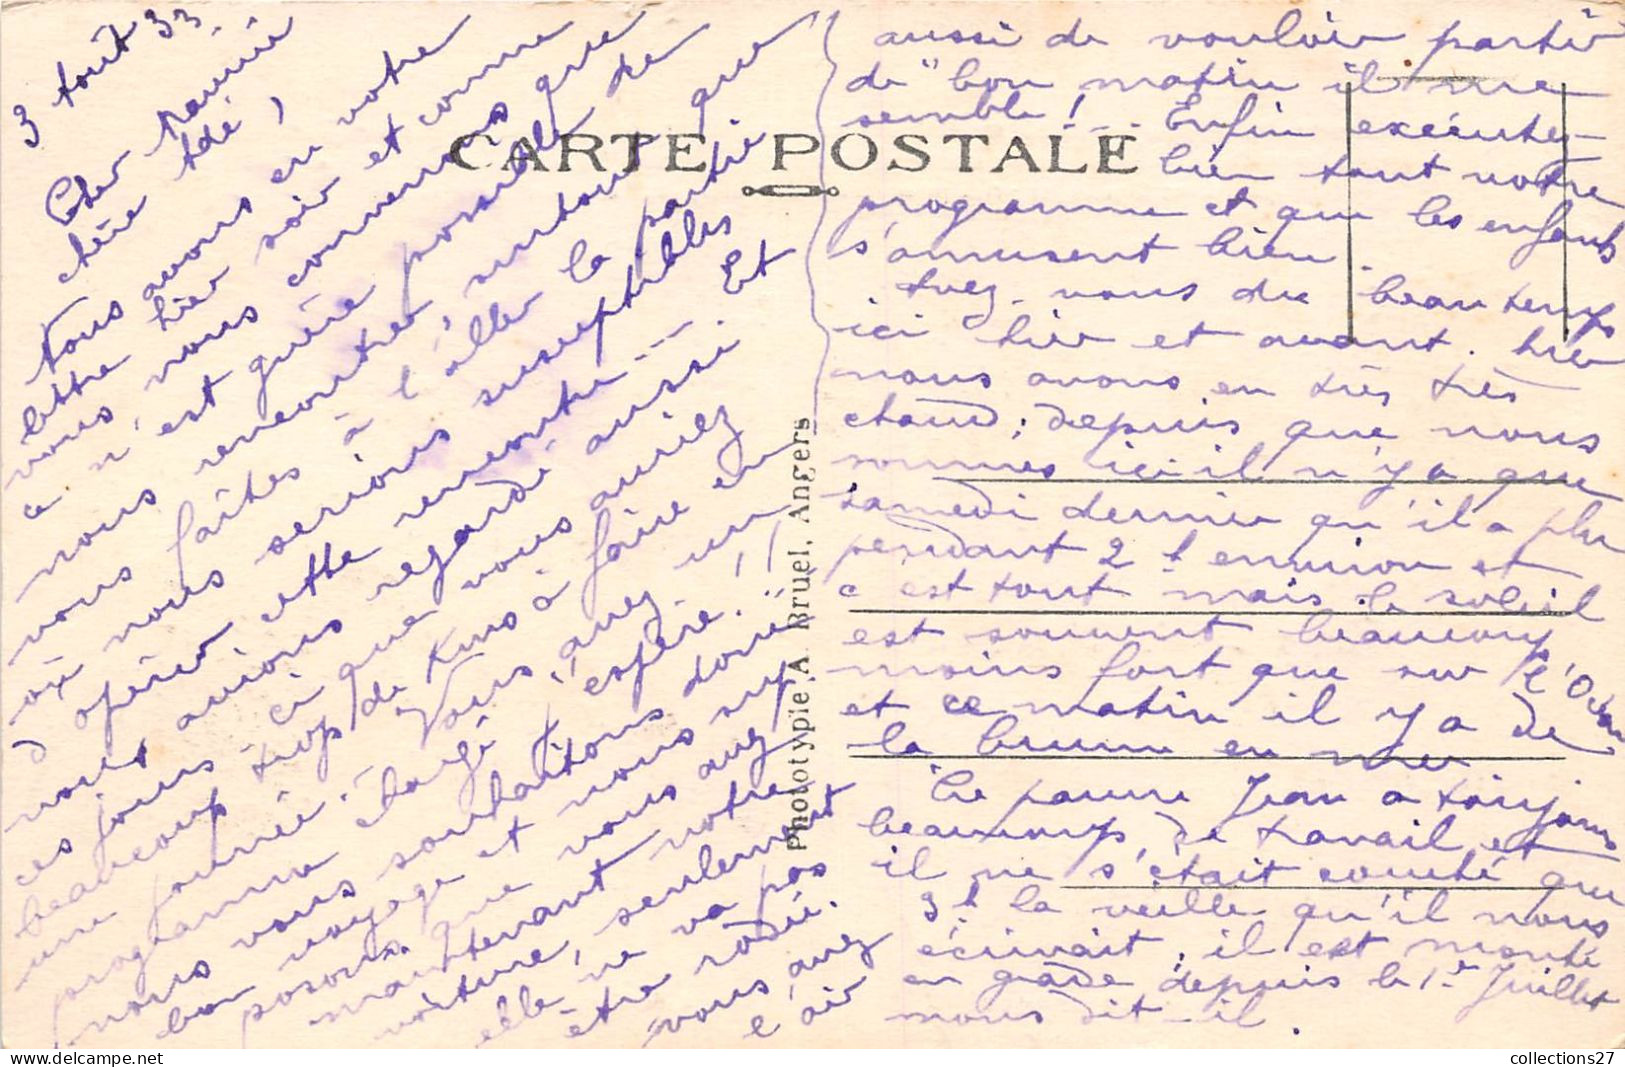 3 Août 33.
Cher parrain
chère Adé,
Nous avons eu votre
lettre hier soir et comme
vous, nous convenons que
ce n'est guère possible de
nous rencontrer, surtout que
vous faîtes à l'aller la partie
où nous serions susceptibles
d'opérer cette rencontre... Et
nous avions regardé aussi.
ces jours ci que vous auriez
beaucoup trop de kms à faire en
une journée. Vous avez un
programme chargé, j'espère!!
nous vous souhaitons donc
bon voyage et nous sup
posons que vous avez
maintenant votre
voiture, seulement
elle ne va pas
être rodée.
vous avez
l'air
aussi de vouloir partir
de bon matin il me
semble!... Enfin exécutez
bien tout votre
programme et que les enfants
s'amusent bien.
Avez-vous du beau temps
ici hier et avant. hier
nous avons eu très très
chaud; depuis que nous
sommes ici il n'y a que
samedi dernier qu'il a plu
pendant 2 h environ et
c'est tout mais le soleil
est souvent beaucoup
moins fort que sur l'Océan
et ce matin il y a de
la brume en mer
Le pauvre Jean a toujours
beaucoup de travail et
il ne s'était couché que
3 h la veille qu'il nous
écrivait; il est monté
en grade depuis le 1er Juillet
nous dit-il.
CARTE POSTALE
Phototypie A. Bruel, Angers
collections27